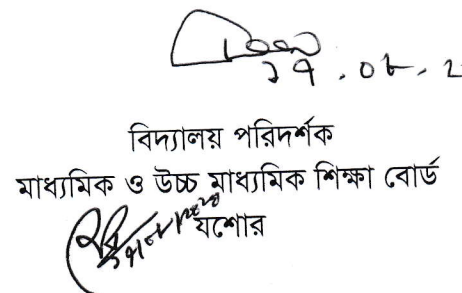 ২৭.০৮.২
বিদ্যালয় পরিদর্শক
মাধ্যমিক ও উচ্চ মাধ্যমিক শিক্ষা বোর্ড
যশোর